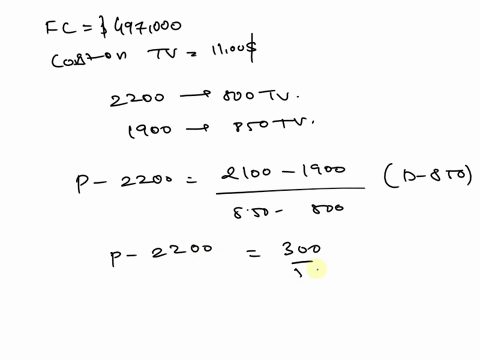 FC = $ 497,000
Cost on TV = 1100$
2200 → 800 TV.
1900 → 850 TV.
P - 2200 = 2100 - 1900 / 850 - 800 (D - 850)
P - 2200 = 300 / 1